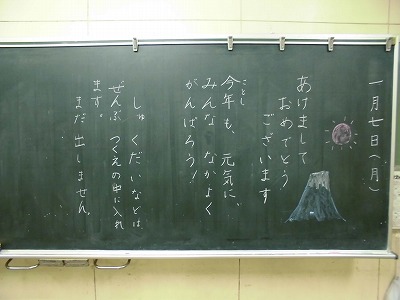 一月七日（月）
あけまして
おめでとう
ございます
ことし
今年も、元気に、
みんな なかよく
がんばろう！
しゅくだいなどは、
ぜんぶ つくえの中に入れ
ます。
まだ出しません。